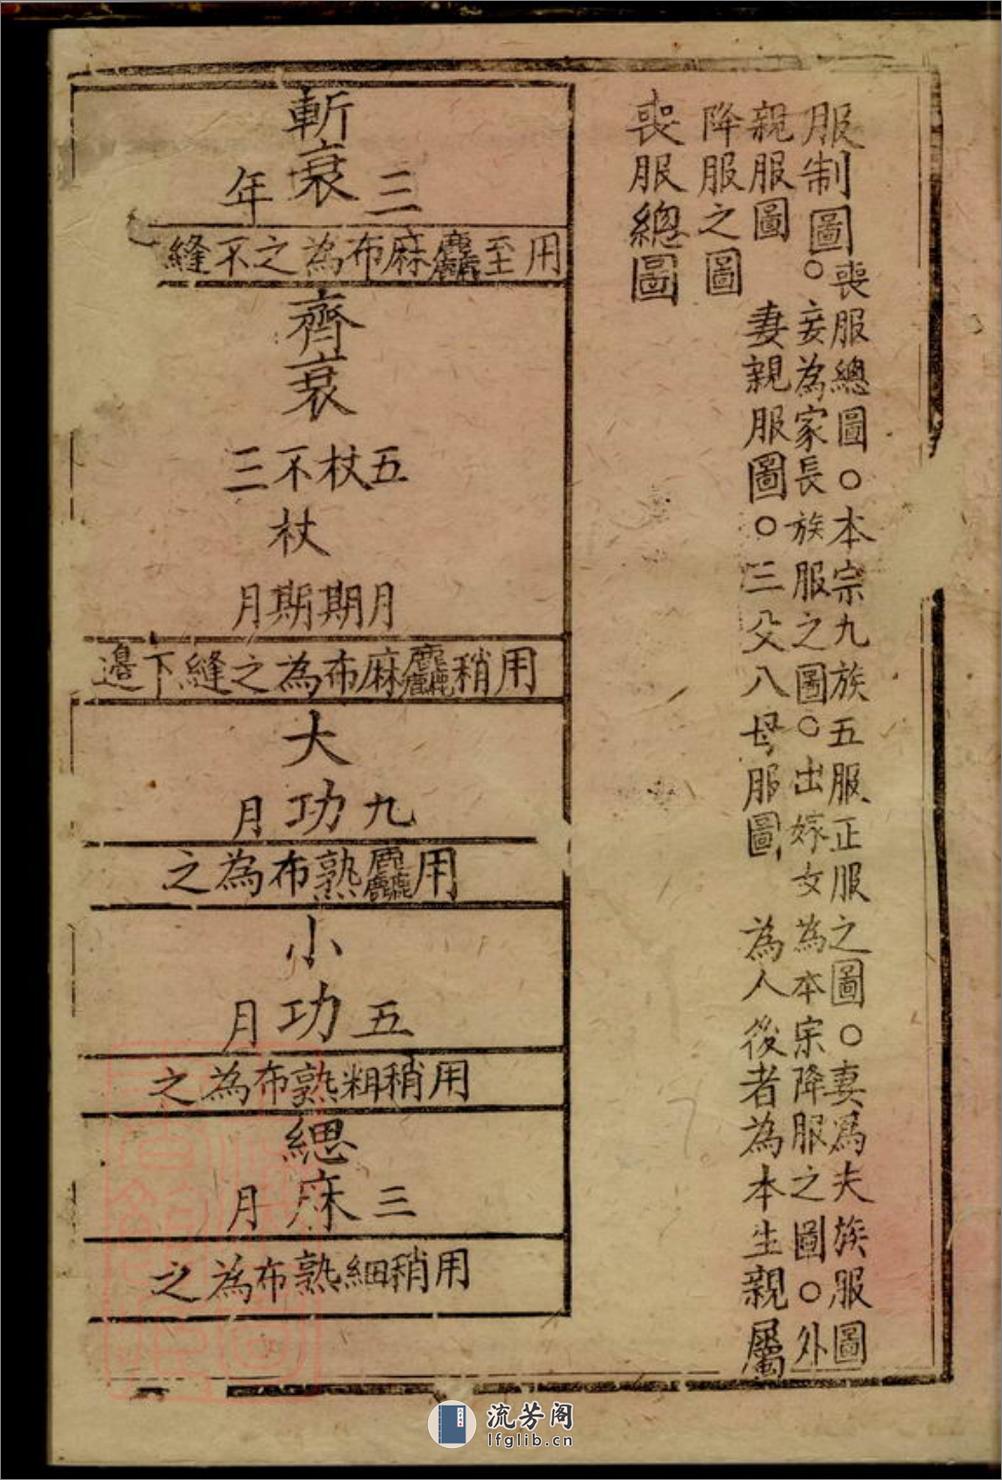 服制圖○
喪服總圖○本宗九族五服正服之圖○妻爲夫族服圖
妾為家長族服之圖○出嫁女為本宗降服之圖○外
親服圖 妻親服圖○三父八母服圖 為人後者為本生親屬
降服之圖
喪服總圖
斬衰
三年
用至麤麻布為之不縫
齊衰
五月
杖期
不杖期
三月
用稍麤麻布為之縫下邊
大功
九月
用麤熟布為之
小功
五月
用稍粗熟布為之
緦麻
三月
用稍細熟布為之
流芳阁
lfglib.cn